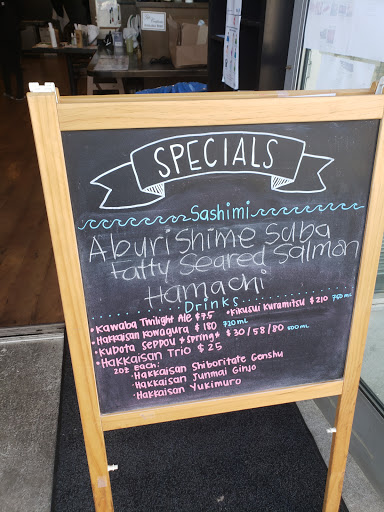 SPECIALS
Sashimi
Aburi Shime Suba
Fatty Seared Salmon
Hamachi
Drinks
• Kawaba Twilight Ale $7.5 • Kikusui Kuramitsu $210 750 ML
• Hakkaisan Kowagura $180 720 ML
• Kubota Seppou *Spring* $30/58/80 500 ML
• HAKKAISAN TRIO $25
2oz Each:
• Hakkaisan Shiboritate Genshu
• Hakkaisan Junmai Ginjo
• Hakkaisan Yukimuro